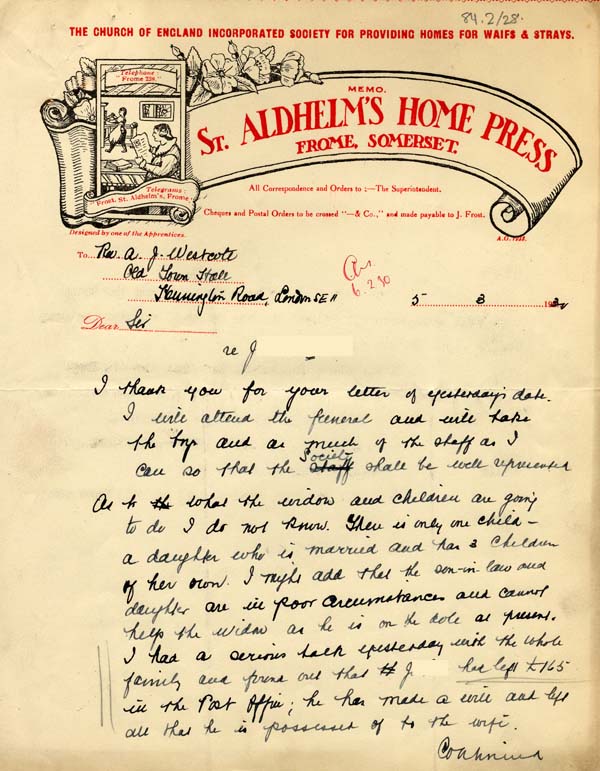 84.2/28.
THE CHURCH OF ENGLAND INCORPORATED SOCIETY FOR PROVIDING HOMES FOR WAIFS & STRAYS.
Telephone:
"Frome 238."
MEMO.
ST. ALDHELM'S HOME PRESS
FROME, SOMERSET.
All Correspondence and Orders to :—The Superintendent.
Telegrams:
"Frost, St. Aldhelm's, Frome."
Cheques and Postal Orders to be crossed "—& Co.," and made payable to J. Frost.
Designed by one of the Apprentices.
To Rev A. J. Westcott
Old Town Hall
Kennington Road, London SE 11
5 3 193
Dear Sir
re J
I thank you for your letter of yesterday's date.
I will attend the funeral and will take
the boys and as much of the staff as I
can so that the staff Society shall be well represented
As to the what the widow and children are going
to do I do not know. There is only one child –
a daughter who is married and has 3 children
of her own. I might add that the son-in-law and
daughter are in poor circumstances and cannot
help the widow as he is on the dole at present.
I had a serious talk yesterday with the whole
family and found out that J. had left £165
in the Post Office; he has made a will and left
all that he is possessed of to the wife.